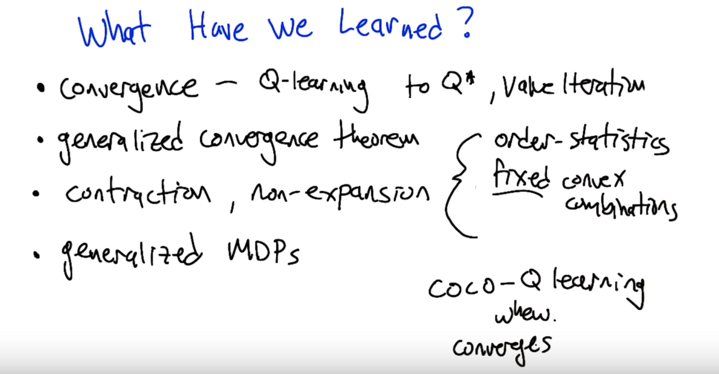 What Have we Learned?
• convergence – Q-learning to Q*, Value Iteration
• generalized convergence theorem
• contraction, non-expansion
• generalized MDPs
{ order-statistics
fixed convex
combinations
COCO-Q learning
whew.
converges